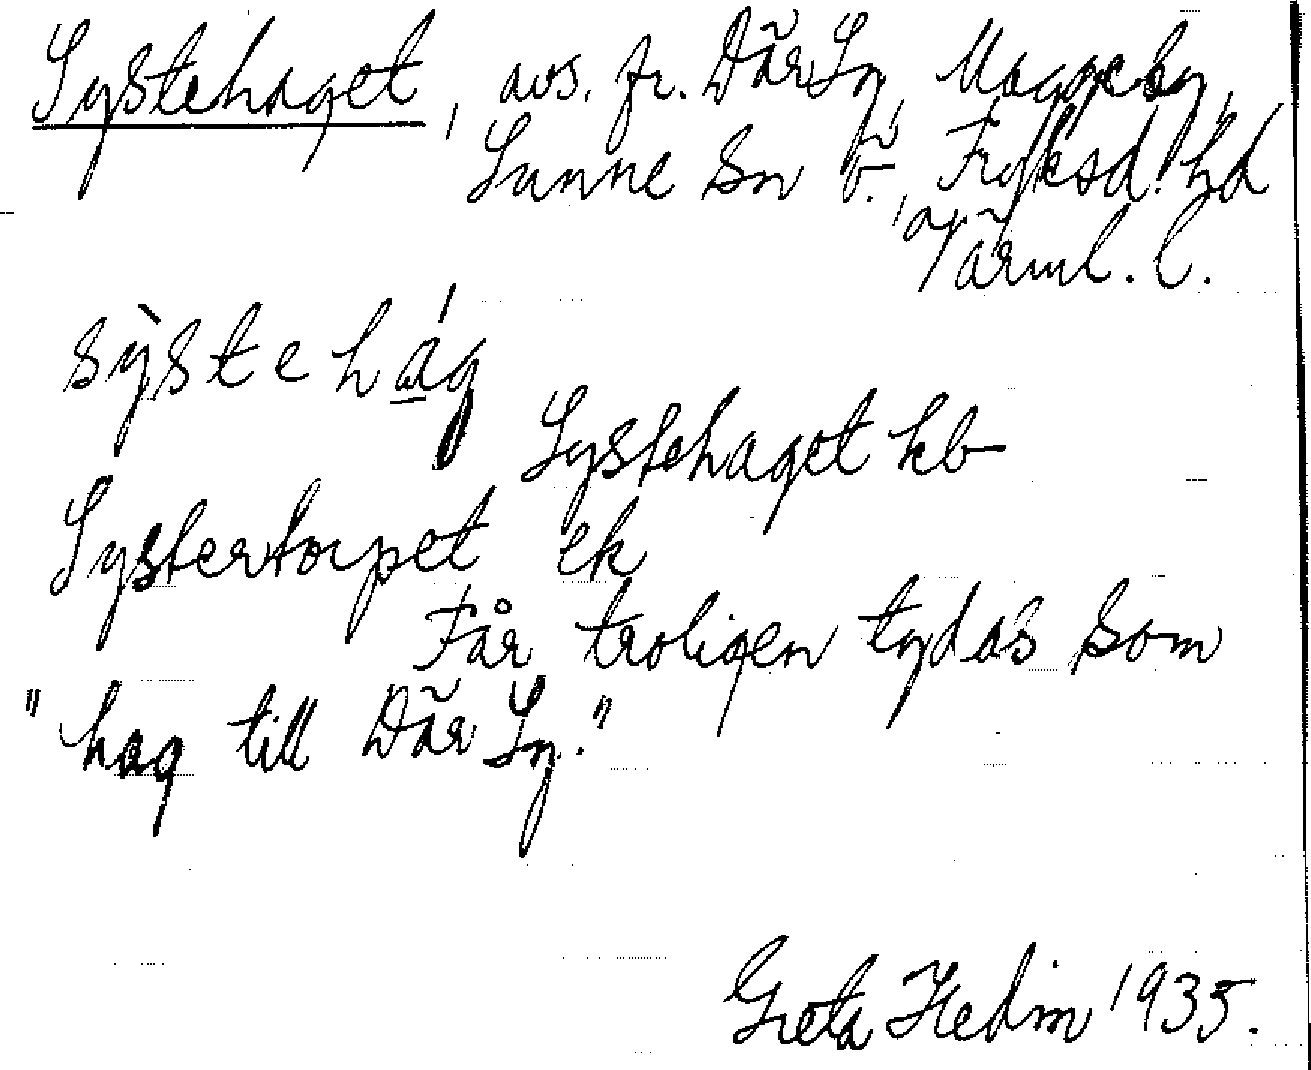 Systehaget, avs. fr. Där Sy, Maggeby,
Sunne sn V., Fryksd. hd,
Värml. l.
sỳstehág
Systehaget kb
Systertorpet ek
Får troligen tydas som
"hag till Där Sy."
Greta Hedin 1935.